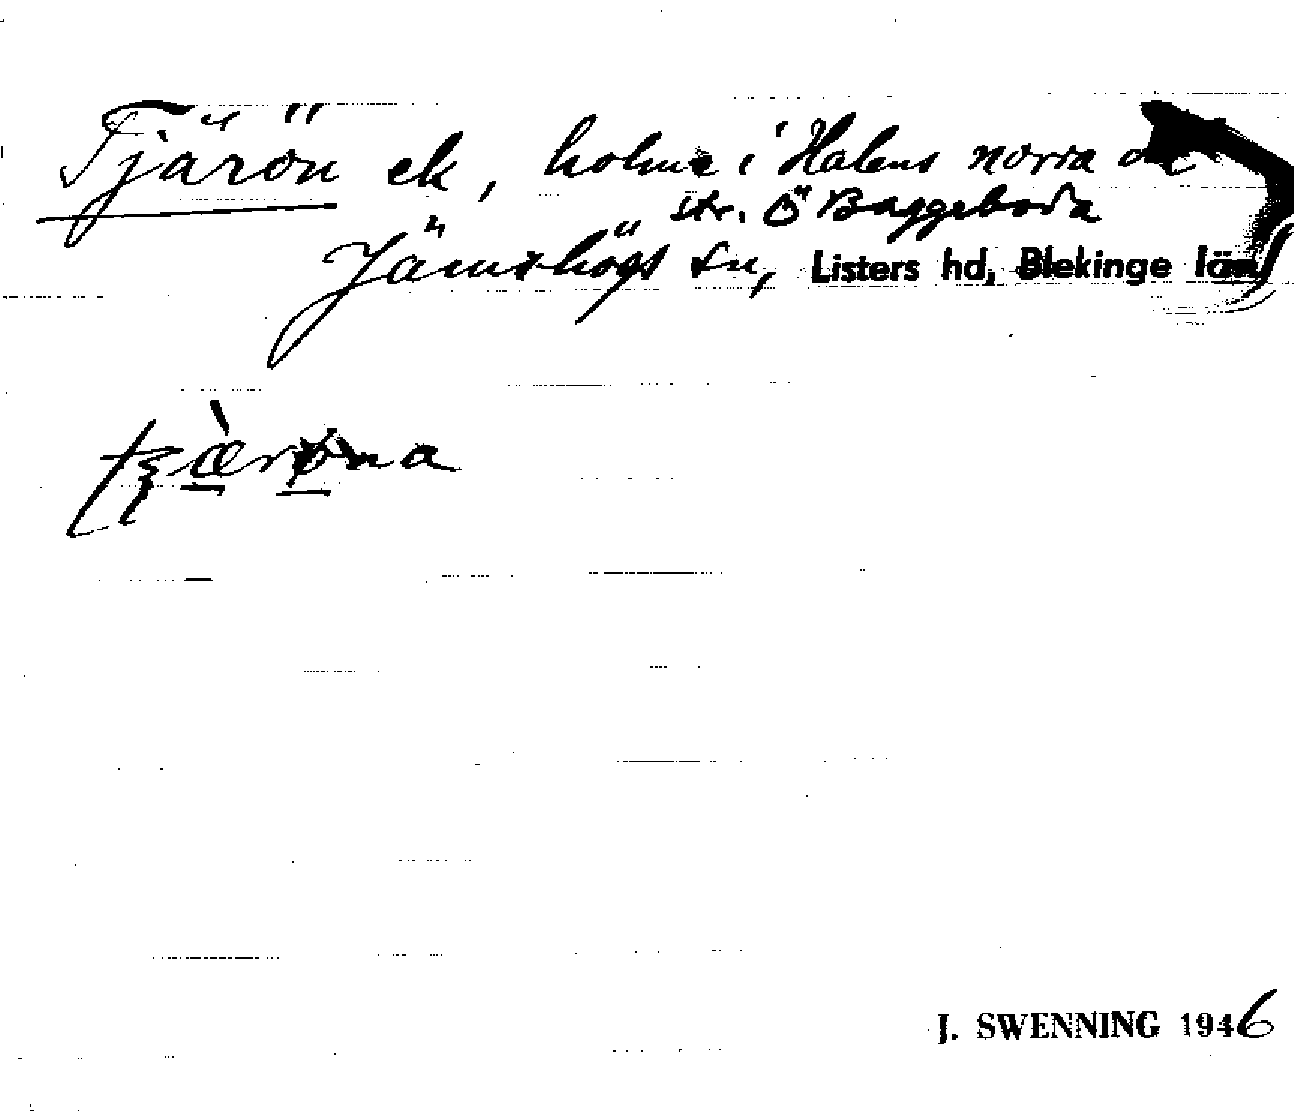 Tjärön ek, holme i Halens norra
str. Ö Baggeboda
Jämshögs sn, Listers hd, Blekinge län
J. SWENNING 1946